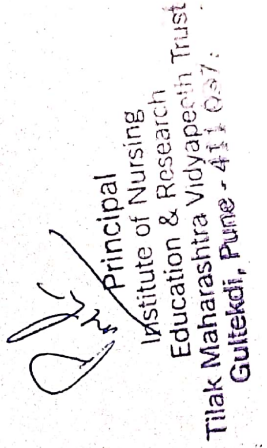 Principal
Institute of Nursing
Education & Research
Tilak Maharashtra Vidyapeeth Trust
Gultekdi, Pune - 411 037.